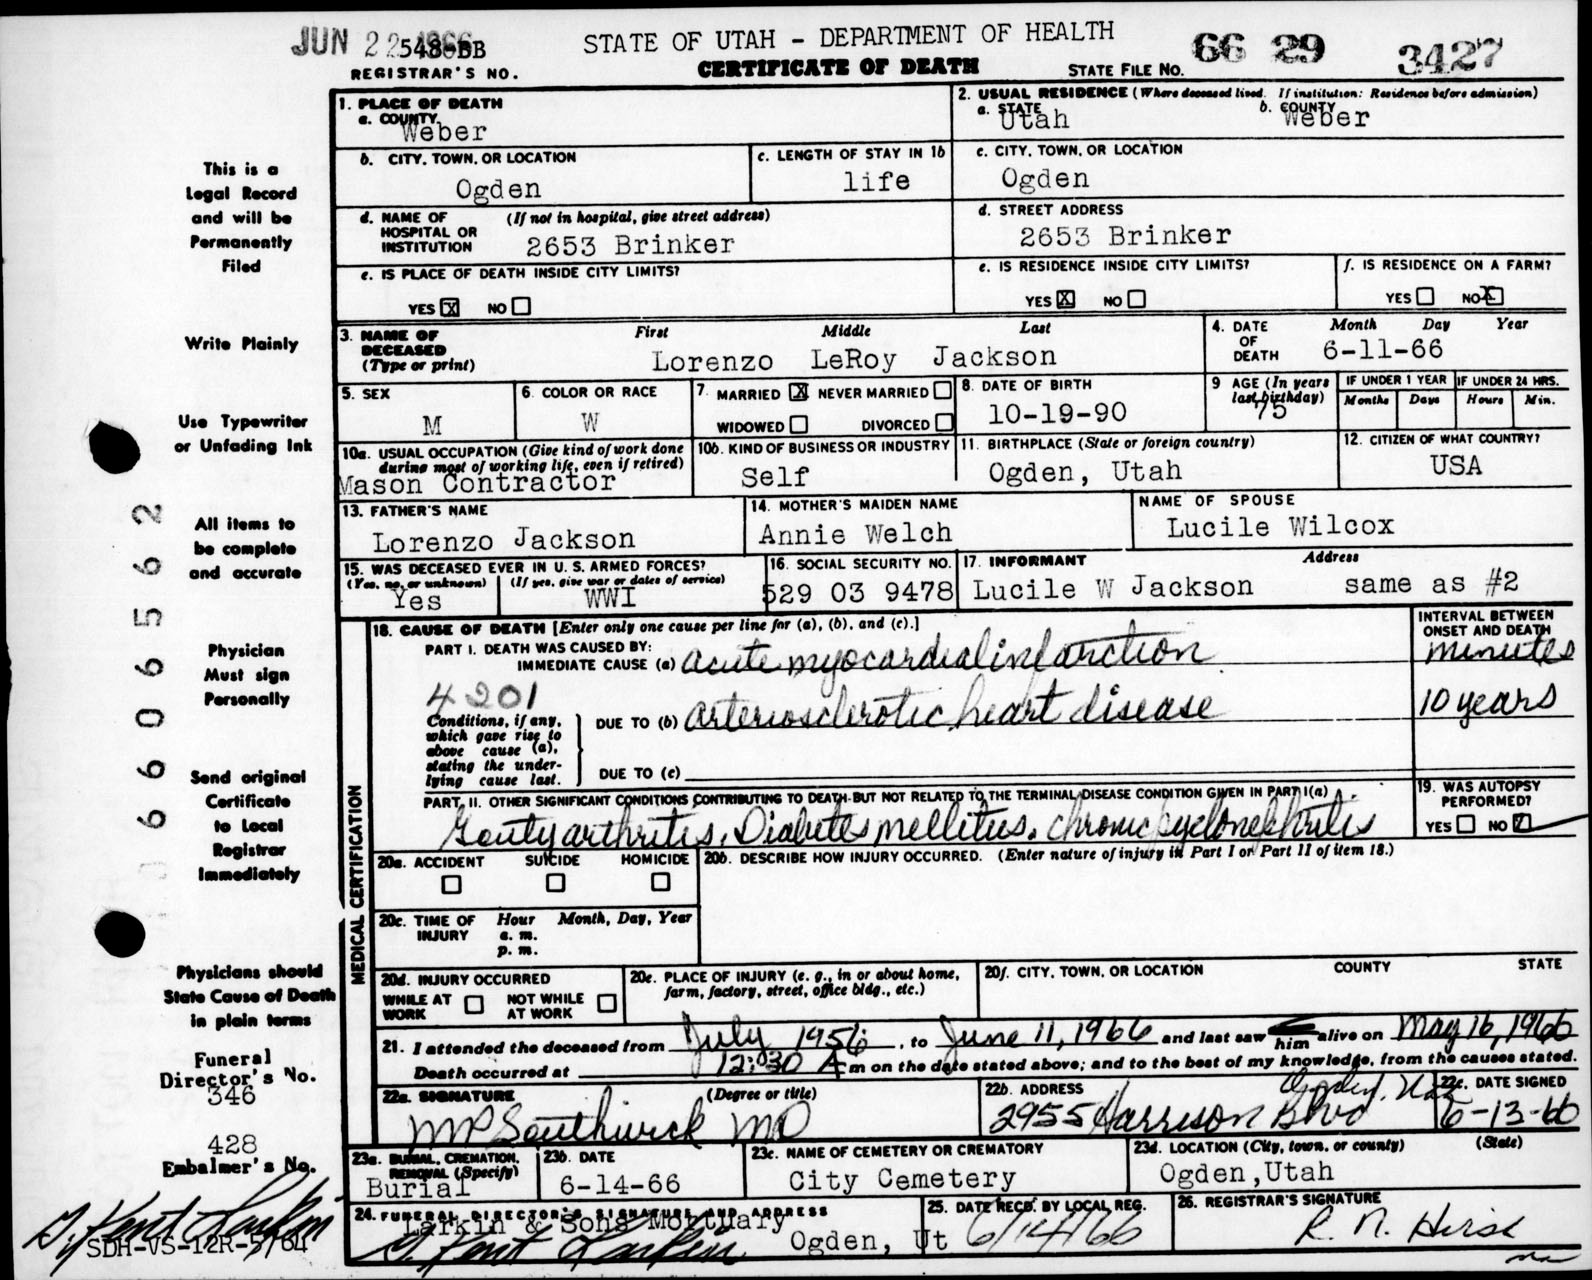 JUN 22 1966
548-BB
REGISTRAR'S NO.
STATE OF UTAH - DEPARTMENT OF HEALTH
CERTIFICATE OF DEATH
STATE FILE NO. 66 29 3427
1. PLACE OF DEATH
a. COUNTY
Weber
2. USUAL RESIDENCE (Where deceased lived. If institution: Residence before admission)
a. STATE b. COUNTY
Utah Weber
b. CITY, TOWN, OR LOCATION
Ogden
c. LENGTH OF STAY IN 1b
life
c. CITY, TOWN, OR LOCATION
Ogden
d. NAME OF HOSPITAL OR INSTITUTION (If not in hospital, give street address)
2653 Brinker
d. STREET ADDRESS
2653 Brinker
e. IS PLACE OF DEATH INSIDE CITY LIMITS?
YES X NO
e. IS RESIDENCE INSIDE CITY LIMITS?
YES X NO
f. IS RESIDENCE ON A FARM?
YES NO X
3. NAME OF DECEASED (Type or print)
First Middle Last
Lorenzo LeRoy Jackson
4. DATE OF DEATH
Month Day Year
6-11-66
5. SEX
M
6. COLOR OR RACE
W
7. MARRIED X NEVER MARRIED
WIDOWED DIVORCED
8. DATE OF BIRTH
10-19-90
9 AGE (In years last birthday)
75
IF UNDER 1 YEAR
Months Days
IF UNDER 24 HRS.
Hours Min.
10a. USUAL OCCUPATION (Give kind of work done during most of working life, even if retired)
Mason Contractor
10b. KIND OF BUSINESS OR INDUSTRY
Self
11. BIRTHPLACE (State or foreign country)
Ogden, Utah
12. CITIZEN OF WHAT COUNTRY?
USA
13. FATHER'S NAME
Lorenzo Jackson
14. MOTHER'S MAIDEN NAME
Annie Welch
NAME OF SPOUSE
Lucile Wilcox
15. WAS DECEASED EVER IN U. S. ARMED FORCES?
(Yes, no, or unknown) (If yes, give war or dates of service)
Yes WWI
16. SOCIAL SECURITY NO.
529 03 9478
17. INFORMANT Address
Lucile W Jackson same as #2
MEDICAL CERTIFICATION
18. CAUSE OF DEATH [Enter only one cause per line for (a), (b), and (c).]
PART I. DEATH WAS CAUSED BY:
IMMEDIATE CAUSE (a) acute myocardial infarction
INTERVAL BETWEEN ONSET AND DEATH
minutes
4201
Conditions, if any, which gave rise to above cause (a), stating the underlying cause last.
DUE TO (b) arteriosclerotic heart disease
10 years
DUE TO (c)
PART II. OTHER SIGNIFICANT CONDITIONS CONTRIBUTING TO DEATH BUT NOT RELATED TO THE TERMINAL DISEASE CONDITION GIVEN IN PART I(a)
Gouty arthritis, Diabetes mellitus, chronic pyelonephritis
19. WAS AUTOPSY PERFORMED?
YES NO
20a. ACCIDENT SUICIDE HOMICIDE
20b. DESCRIBE HOW INJURY OCCURRED. (Enter nature of injury in Part I or Part II of item 18.)
20c. TIME OF INJURY
Hour Month, Day, Year
a. m.
p. m.
20d. INJURY OCCURRED
WHILE AT WORK NOT WHILE AT WORK
20e. PLACE OF INJURY (e. g., in or about home, farm, factory, street, office bldg., etc.)
20f. CITY, TOWN, OR LOCATION COUNTY STATE
21. I attended the deceased from July 1956, to June 11, 1966 and last saw him alive on May 16, 1966
Death occurred at 12:30 A m on the date stated above; and to the best of my knowledge, from the causes stated.
22a. SIGNATURE (Degree or title)
MP Southwick MD
22b. ADDRESS
2955 Harrison Blvd Ogden, Utah
22c. DATE SIGNED
6-13-66
23a. BURIAL, CREMATION, REMOVAL (Specify)
Burial
23b. DATE
6-14-66
23c. NAME OF CEMETERY OR CREMATORY
City Cemetery
23d. LOCATION (City, town, or county) (State)
Ogden, Utah
24. FUNERAL DIRECTOR'S SIGNATURE AND ADDRESS
Larkin & Sons Mortuary
G. Kent Larkin
Ogden, Ut
25. DATE REC'D. BY LOCAL REG.
6/14/66
26. REGISTRAR'S SIGNATURE
R. N. Hirst
This is a
Legal Record
and will be
Permanently
Filed
Write Plainly
Use Typewriter
or Unfading Ink
All items to
be complete
and accurate
Physician
Must sign
Personally
Send original
Certificate
to Local
Registrar
Immediately
Physicians should
State Cause of Death
in plain terms
Funeral
Director's No.
346
428
Embalmer's No.
G. Kent Larkin
SDH-VS-12R-5/64
6606562